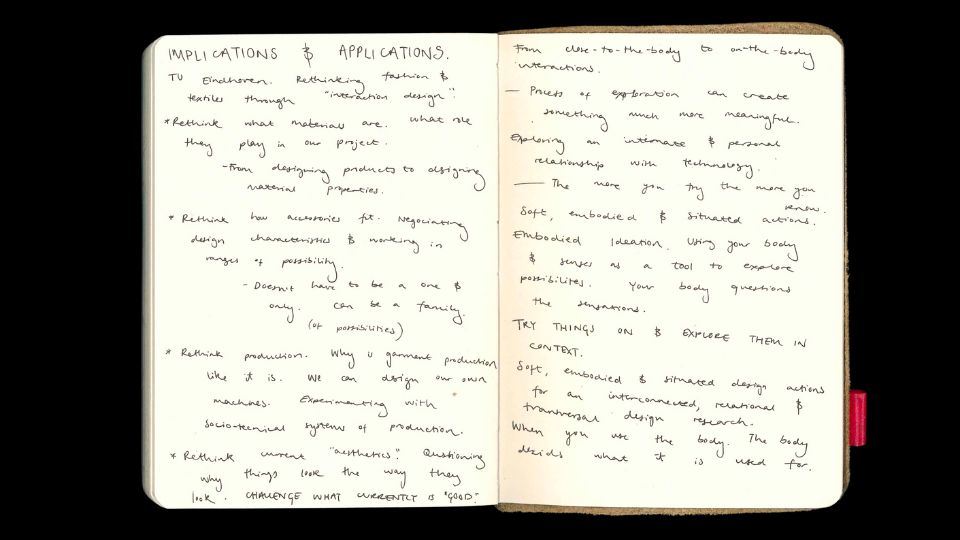 IMPLICATIONS & APPLICATIONS.
TU Eindhoven. Rethinking fashion &
textiles through "interaction design".
*Rethink what materials are. What role
they play in our project.
-From designing products to designing
material properties.
* Rethink how accessories fit. Negociating
design characteristics & working in
ranges of possibility.
- Doesn't have to be a one &
only. Can be a family.
(of possibilities)
* Rethink production. Why is garment production
like it is. We can design our own
machines. Experimenting with
socio-tecnical systems of production.
* Rethink current "aesthetics". Questioning
why things look the way they
look. CHALLENGE WHAT CURRENTLY IS "GOOD"
From close-to-the-body to on-the-body
interactions.
— Process of exploration can create
something much more meaningful.
Exploring an intemate & personal
relationship with technology.
— The more you try the more you
know.
Soft, embodied & situated actions.
Embodied Ideation. Using your body
& senses as a tool to explore
possibilites. Your body questions
the sensations.
TRY THINGS ON & EXPLORE THEM IN
CONTEXT.
Soft, embodied & situated design actions
for an interconnected, relational &
transversal design research.
When you use the body. The body
decids what it is used for.